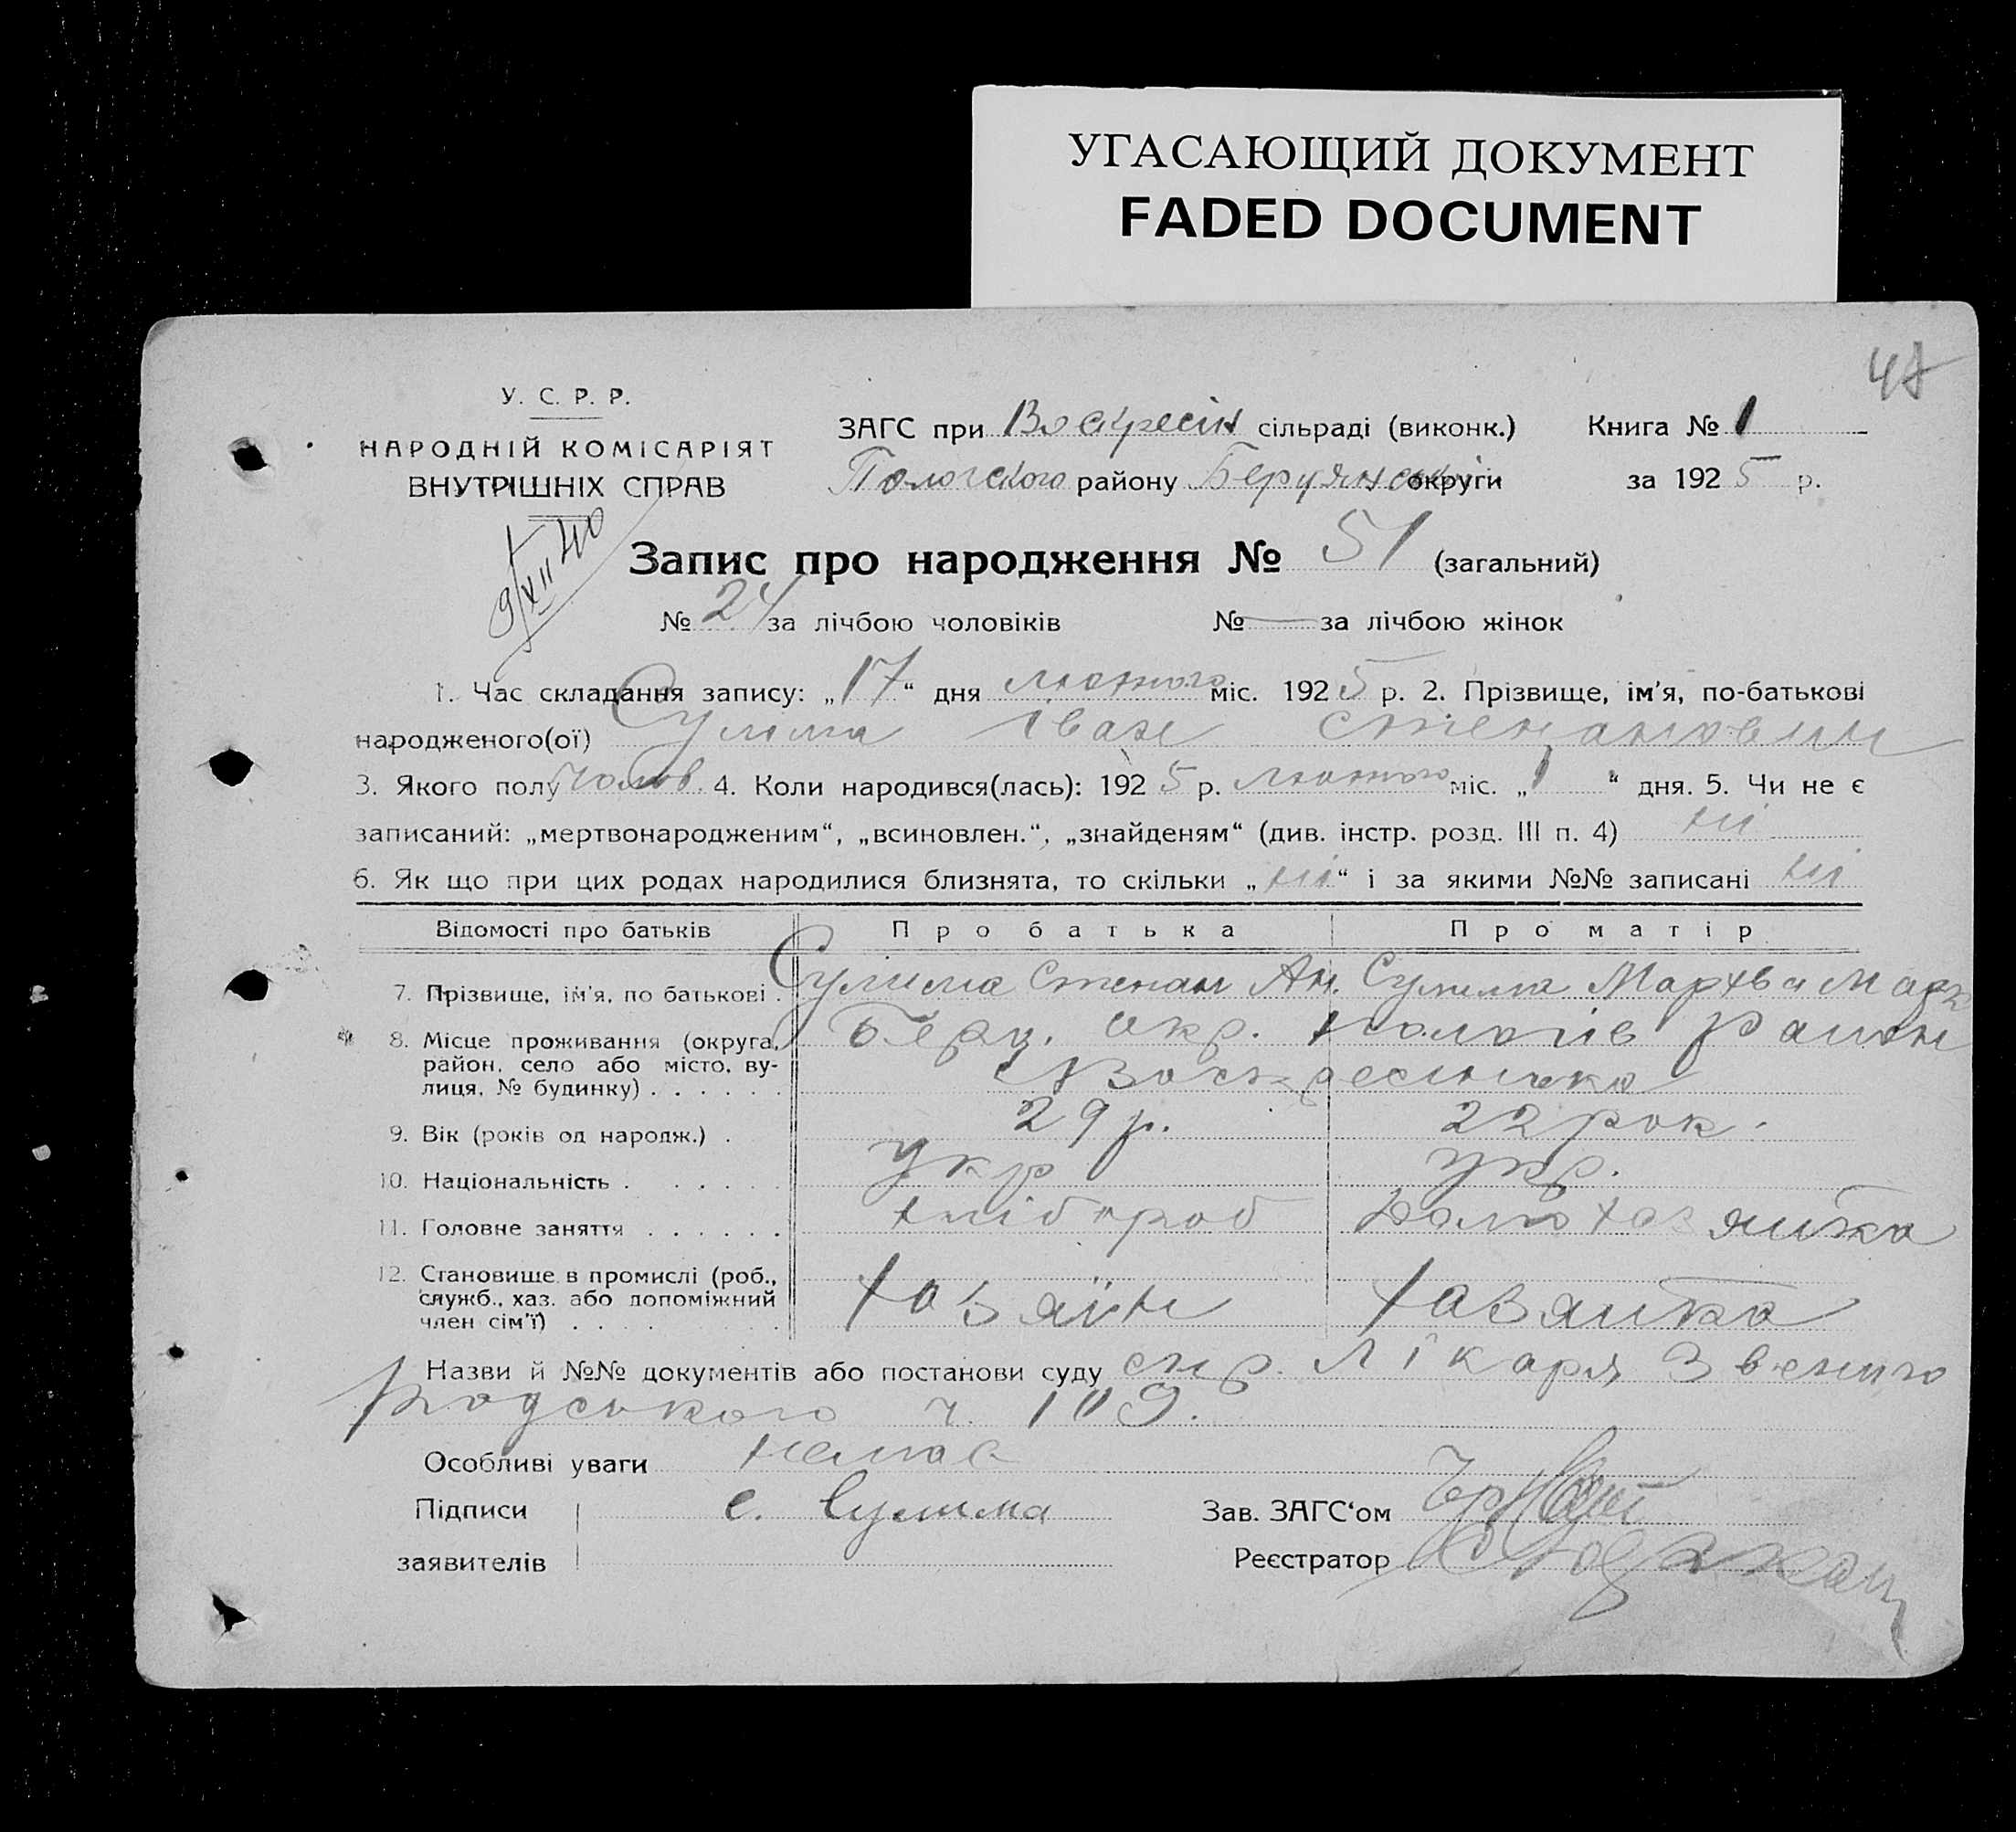 УГАСАЮЩИЙ ДОКУМЕНТ
FADED DOCUMENT
У. С. Р. Р.
НАРОДНІЙ КОМІСАРІЯТ
ВНУТРІШНІХ СПРАВ
9/XII 40
ЗАГС при Воскресін сільраді (виконк.) Книга № 1
Пологского району Бердянської округи за 1925 р.
Запис про народження № 51 (загальний)
№ 24 за лічбою чоловіків № — за лічбою жінок
1. Час складання запису: „17“ дня лютого міс. 1925 р. 2. Прізвище, ім'я, по-батькові
народженого(ої) Сулима Іван Степанович
3. Якого полу чолов. 4. Коли народився(лась): 1925 р. лютого міс. „1“ дня. 5. Чи не є
записаний: „мертвонародженим“, „всиновлен.“, „знайденям“ (див. інстр. розд. III п. 4) ні
6. Як що при цих родах народилися близнята, то скільки „ні“ і за якими №№ записані ні
Відомості про батьків Про батька Про матір
7. Прізвище, ім'я, по батькові . Сулима Степан Ан. Сулима Мархва Марк
8. Місце проживання (округа, Берд. окр. Пологів район
район, село або місто, ву- с Воскресинька
лиця, № будинку) . . . . . .
9. Вік (років од народж.) . 29 р. 22 рок.
10. Національність . . . . . . укр укр.
11. Головне заняття . . . . . . хлібороб домохазяйка
12. Становище в промислі (роб.,
служб., хаз. або допоміжний хазяїн хазяйка
член сім'ї) . . . .
Назви й №№ документів або постанови суду спр. лікаря Звениго
родського ч. 109.
Особливі уваги немає
Підписи С. Сулима Зав. ЗАГС'ом
заявителів Реєстратор